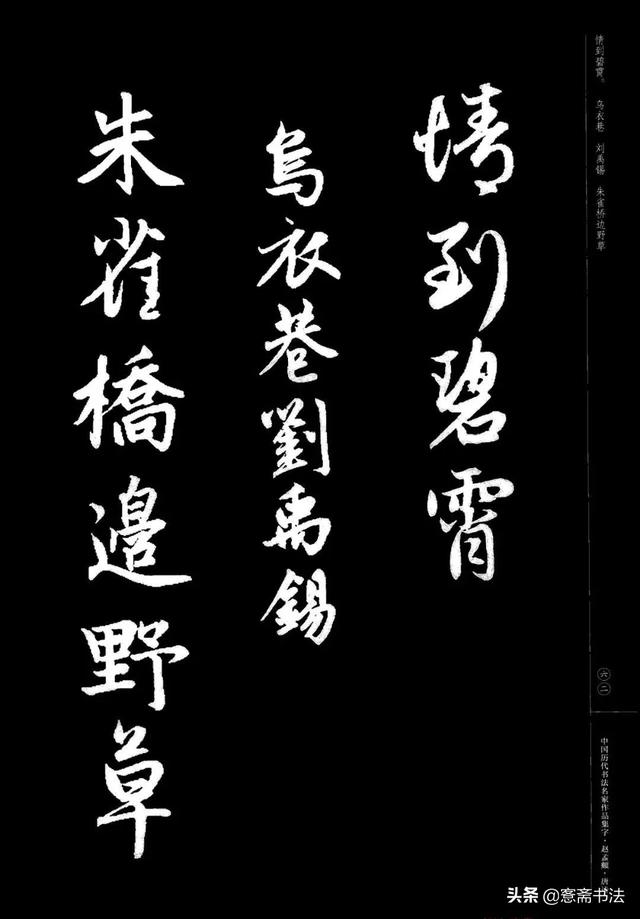 情到碧霄
烏衣巷劉禹錫
朱雀橋邊野草
情到碧霄。 乌衣巷 刘禹锡 朱雀桥边野草
六二
中国历代书法名家作品集字·赵孟頫·唐
头条@窓斋书法